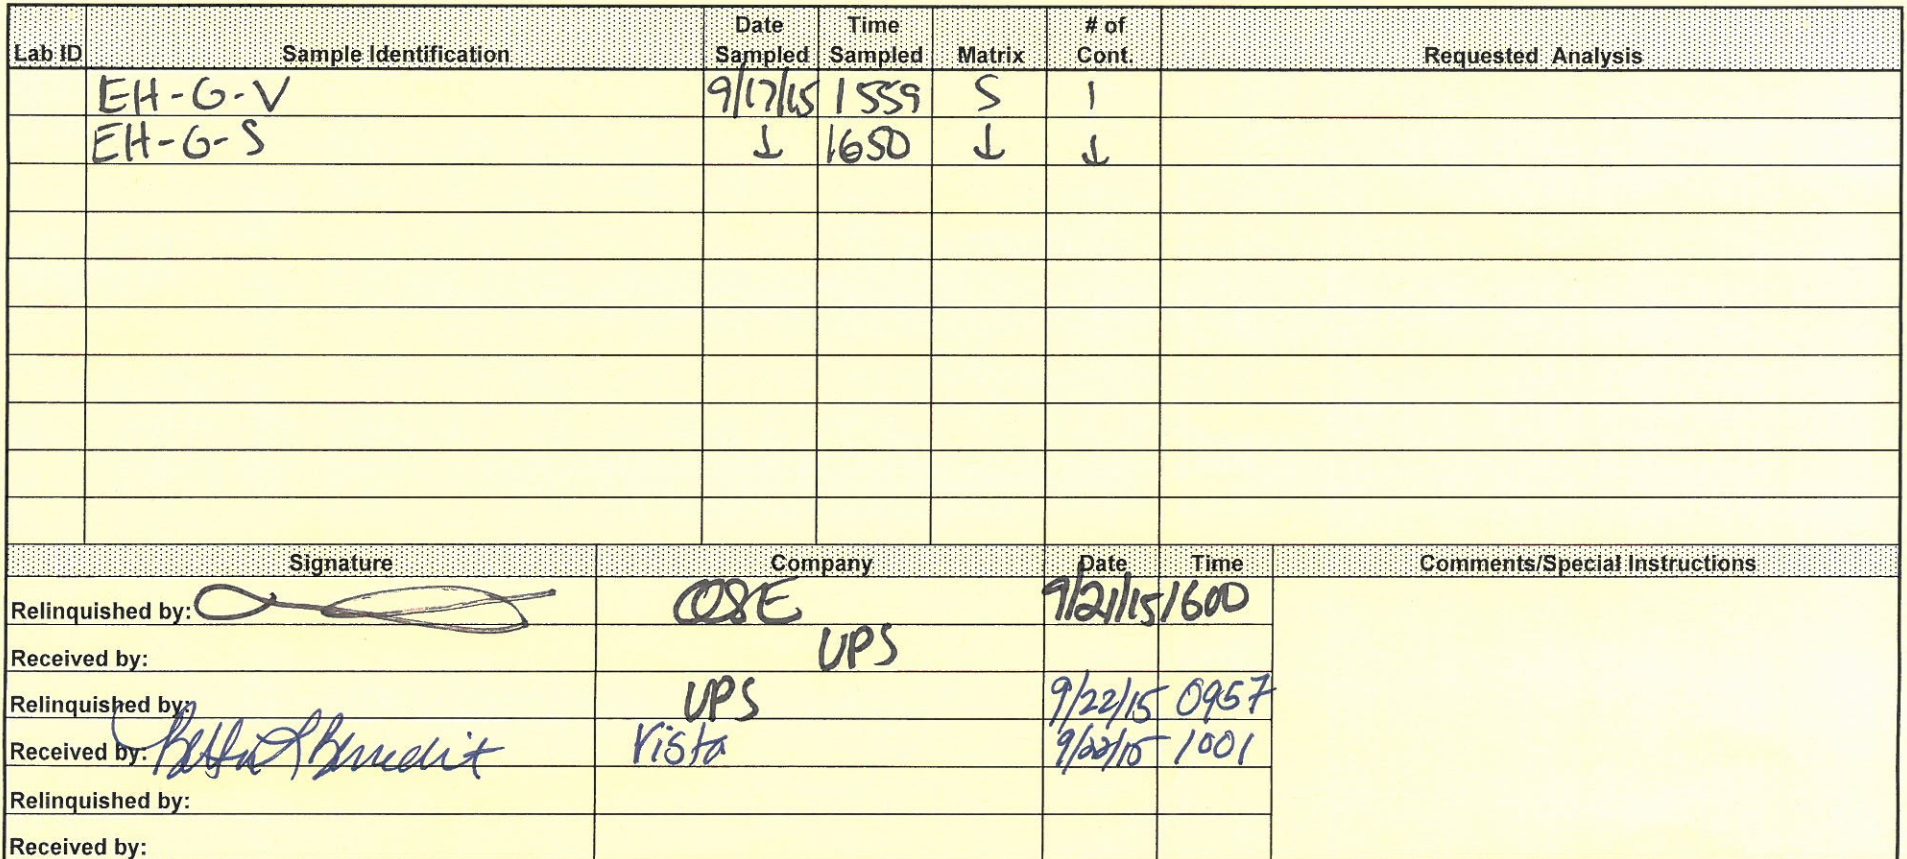 Lab ID Sample Identification Date Sampled Time Sampled Matrix # of Cont. Requested Analysis
EH-G-V 9/17/15 1559 S 1
EH-G-S ↓ 1650 ↓ ↓
Signature Company Date Time Comments/Special Instructions
Relinquished by: 9/21/15 1600
Received by: UPS
Relinquished by: UPS 9/22/15 0957
Received by: Benedict Vista 9/22/15 1001
Relinquished by:
Received by: